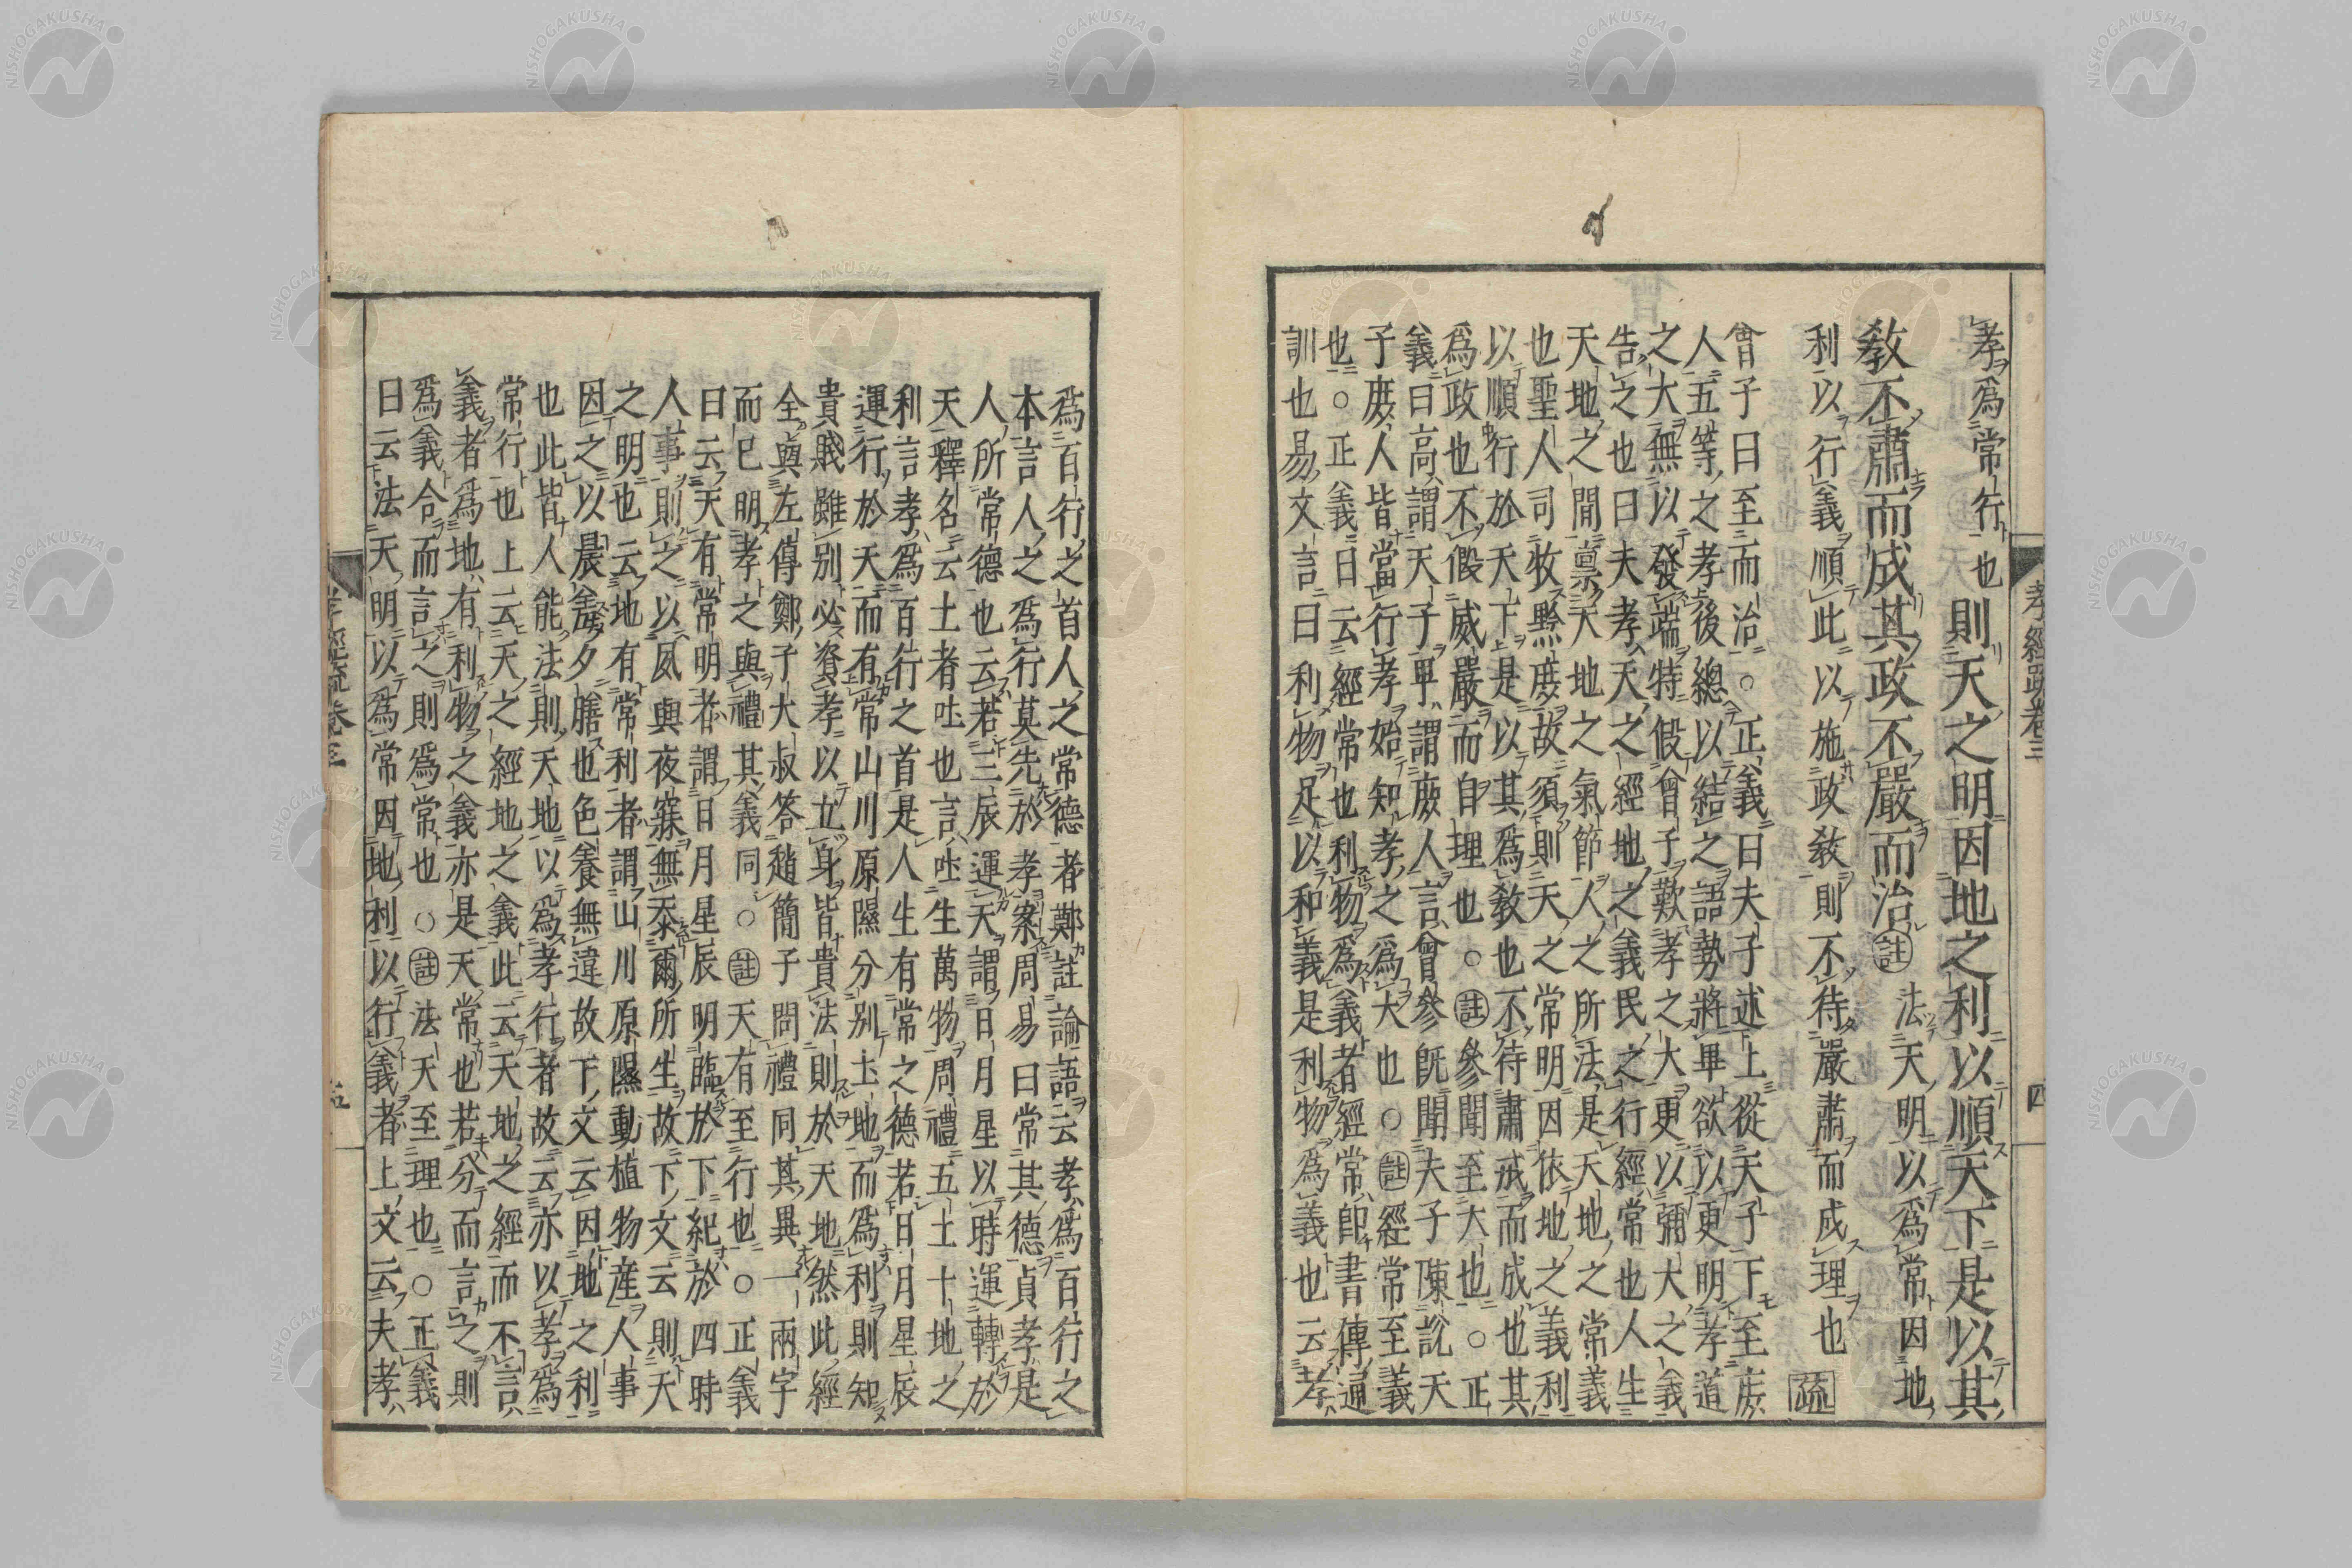 孝爲常行也則天之明因地之利以順天下是以其
教不肅而成其政不嚴而治註法天明以爲常因地
利以行義順此以施政教則不待嚴肅而成理也疏
曾子曰至而治○正義曰夫子述上從天子下至庶
人五等之孝後總以結之語勢將畢欲以更明孝道
之大無以發端特假曾子歎孝之大更以彌大之義
告之也曰夫孝天之經地之義民之行經常也人生
天地之間禀天地之氣節人之所法是天地之常義
也聖人司牧黔庶故須則天之常明因依地之義利
以順行於天下是以其爲教也不待肅戒而成也其
爲政也不假威嚴而自理也○註參聞至大也○正
義曰高謂天子卑謂庶人言曾參旣聞夫子陳說天
子庶人皆當行孝始知孝之爲大也○註經常至義
也○正義曰云經常也利物爲義者經常卽書傳通
訓也易文言曰利物足以和義是利物爲義也云孝
孝經疏卷三
四
爲百行之首人之常德者鄭註論語云孝爲百行之
本言人之爲行莫先於孝案周易曰常其德貞孝是
人所常德也云若三辰運天謂日月星以時運轉於
天釋名云土者吐也言吐生萬物周禮五土十地之
利言孝爲百行之首是人生有常之德若日月星辰
運行於天而有常山川原隰分別土地而爲利則知
貴賤雖別必資孝以立身皆貴法則於天地然此經
全與左傳鄭子大叔答趙簡子問禮同其異一兩字
而已明孝之與禮其義同○註天有至行也○正義
曰云天有常明者謂日月星辰明臨於下紀於四時
人事則之以夙興夜寐無忝爾所生故下文云則天
之明也云地有常利者謂山川原隰動植物産人事
因之以晨羞夕膳也色養無違故下文云因地之利
也此皆人能法則天地以爲孝行者故云亦以孝爲
常行也上云天之經地之義此云天地之經而不言
義者爲地有利物之義亦是天常也若分而言之則
爲義合而言之則爲常也○註法天至理也○正義
曰云法天明以爲常因地利以行義者上文云夫孝
孝經疏卷三